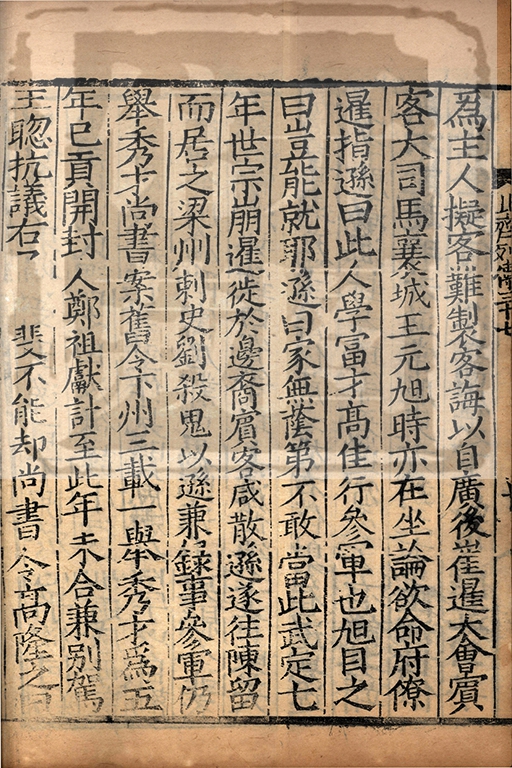 為主人擬客難製客誨以自廣後崔暹大會賓
客大司馬襄城王元旭時亦在坐論欲命府僚
暹指遜曰此人學冨才髙佳行叅軍也旭目之
曰豈能就耶遜曰家無䕃第不敢當此武定七
年世宗崩暹徙於邊裔賓客咸散遜遂往陳留
而居之梁州刺史劉殺鬼以遜兼錄事叅軍仍
舉秀才尚書案舊令下州三載一舉秀才為五
年已貢開封人鄭祖獻計至此年未合兼别駕
王聦抗議右
不能却尚書令髙隆之曰
北齊列傳三十七